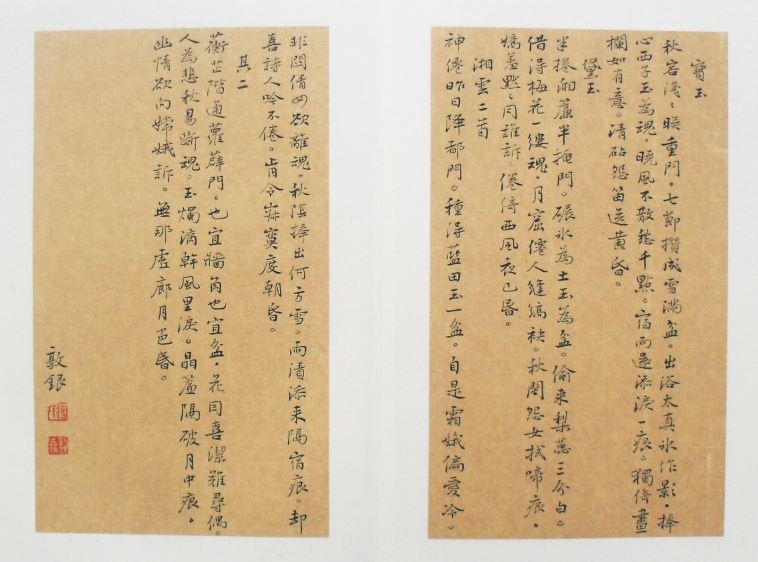 寶玉
秋容淺〻映重門。七節攢成雪滿盆。出浴太真氷作影。捧
心西子玉為魂。曉風不散愁千點。宿雨還添淚一痕。獨倚畫
欄如有意。清砧怨笛送黃昏。
黛玉
半捲湘簾半掩門。碾氷為土玉為盆。偷來梨蕊三分白。
借得梅花一縷魂。月窟僊人縫縞袂。秋閨怨女拭啼痕。
嬌羞默〻同誰訴。倦倚西風夜已昏。
湘雲二首
神僊昨日降都門。種得藍田玉一盆。自是霜娥偏愛冷。
非關倩女欲離魂。秋陰捧出何方雪。雨漬添來隔宿痕。却
喜詩人吟不倦。肯令寂寞度朝昏。
其二
蘅芷階通蘿薜門。也宜牆角也宜盆。花因喜潔難尋偶。
人為悲秋易斷魂。玉燭滴幹風里淚。晶簾隔破月中痕。
幽情欲向嫦娥訴。無那虛廊月色昏。
敦銀